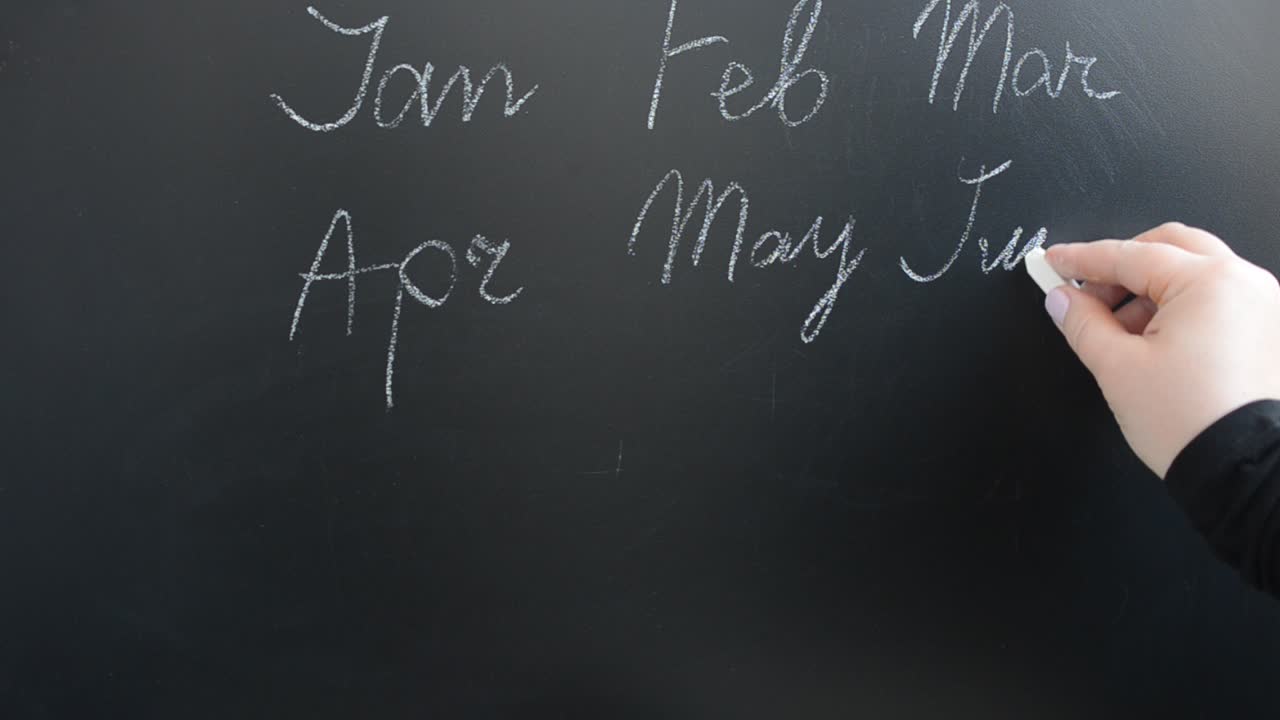 Jan Feb Mar
Apr May Jun